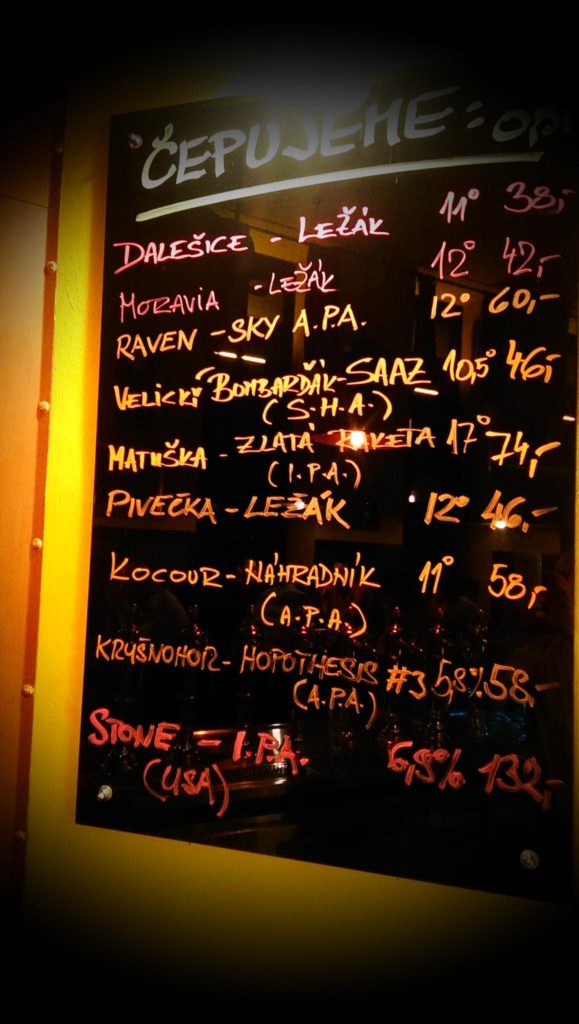 ČEPUJEME:
DALEŠICE - LEŽÁK 11° 38,-
MORAVIA - LEŽÁK 12° 42,-
RAVEN - SKY A.P.A. 12° 60,-
VELICKÝ BOMBARĎÁK - SAAZ 10,5° 46,-
(S.H.A.)
MATUŠKA - ZLATÁ RAKETA 17° 74,-
(I.P.A.)
PIVEČKA - LEŽÁK 12° 46,-
KOCOUR - NÁHRADNÍK 11° 58,-
(A.P.A.)
KRYŠNOHOR - HOPOTHESIS #3 5,8% 58,-
(A.P.A.)
STONE - I.P.A. 6,9% 132,-
(USA)